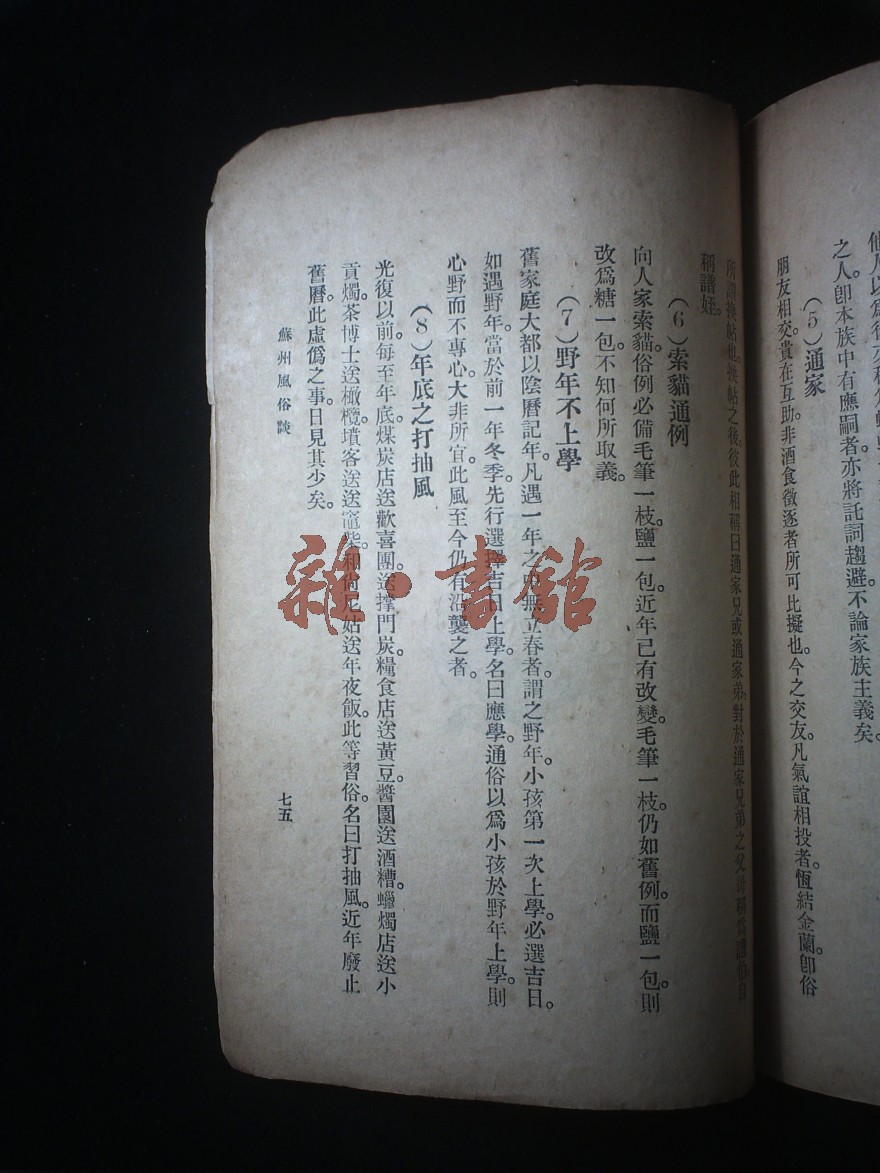 之人。卽本族中有應嗣者。亦將託詞趨避。不論家族主義矣。
（5）通家
朋友相交。貴在互助。非酒食徵逐者所可比擬也。今之交友。凡氣誼相投者。恆結金蘭。卽俗
所謂換帖也。換帖之後。彼此相稱曰通家兄或通家弟。對於通家兄弟之父母。稱
稱譜姪。
（6）索貓通例
向人家索貓。俗例必備毛筆一枝。鹽一包。近年已有改變。毛筆一枝。仍如舊例。而鹽一包。則
改爲糖一包。不知何所取義。
（7）野年不上學
舊家庭大都以陰曆記年。凡遇一年之中無立春者。謂之野年。小孩第一次上學。必選吉日。
如遇野年。當於前一年冬季。先行選擇吉日上學。名曰應學。通俗以爲小孩於野年上學。則
心野而不專心。大非所宜。此風至今仍有沿襲之者。
（8）年底之打抽風
光復以前。每至年底。煤炭店送歡喜團。送撑門炭。糧食店送黃豆。醬園送酒糟。蠟燭店送小
貢燭。茶博士送橄欖。墳客送送竈柴。和尙尼姑送年夜飯。此等習俗。名曰打抽風。近年廢止
舊曆。此虛僞之事。日見其少矣。
蘇州風俗談
七五
雜·書館